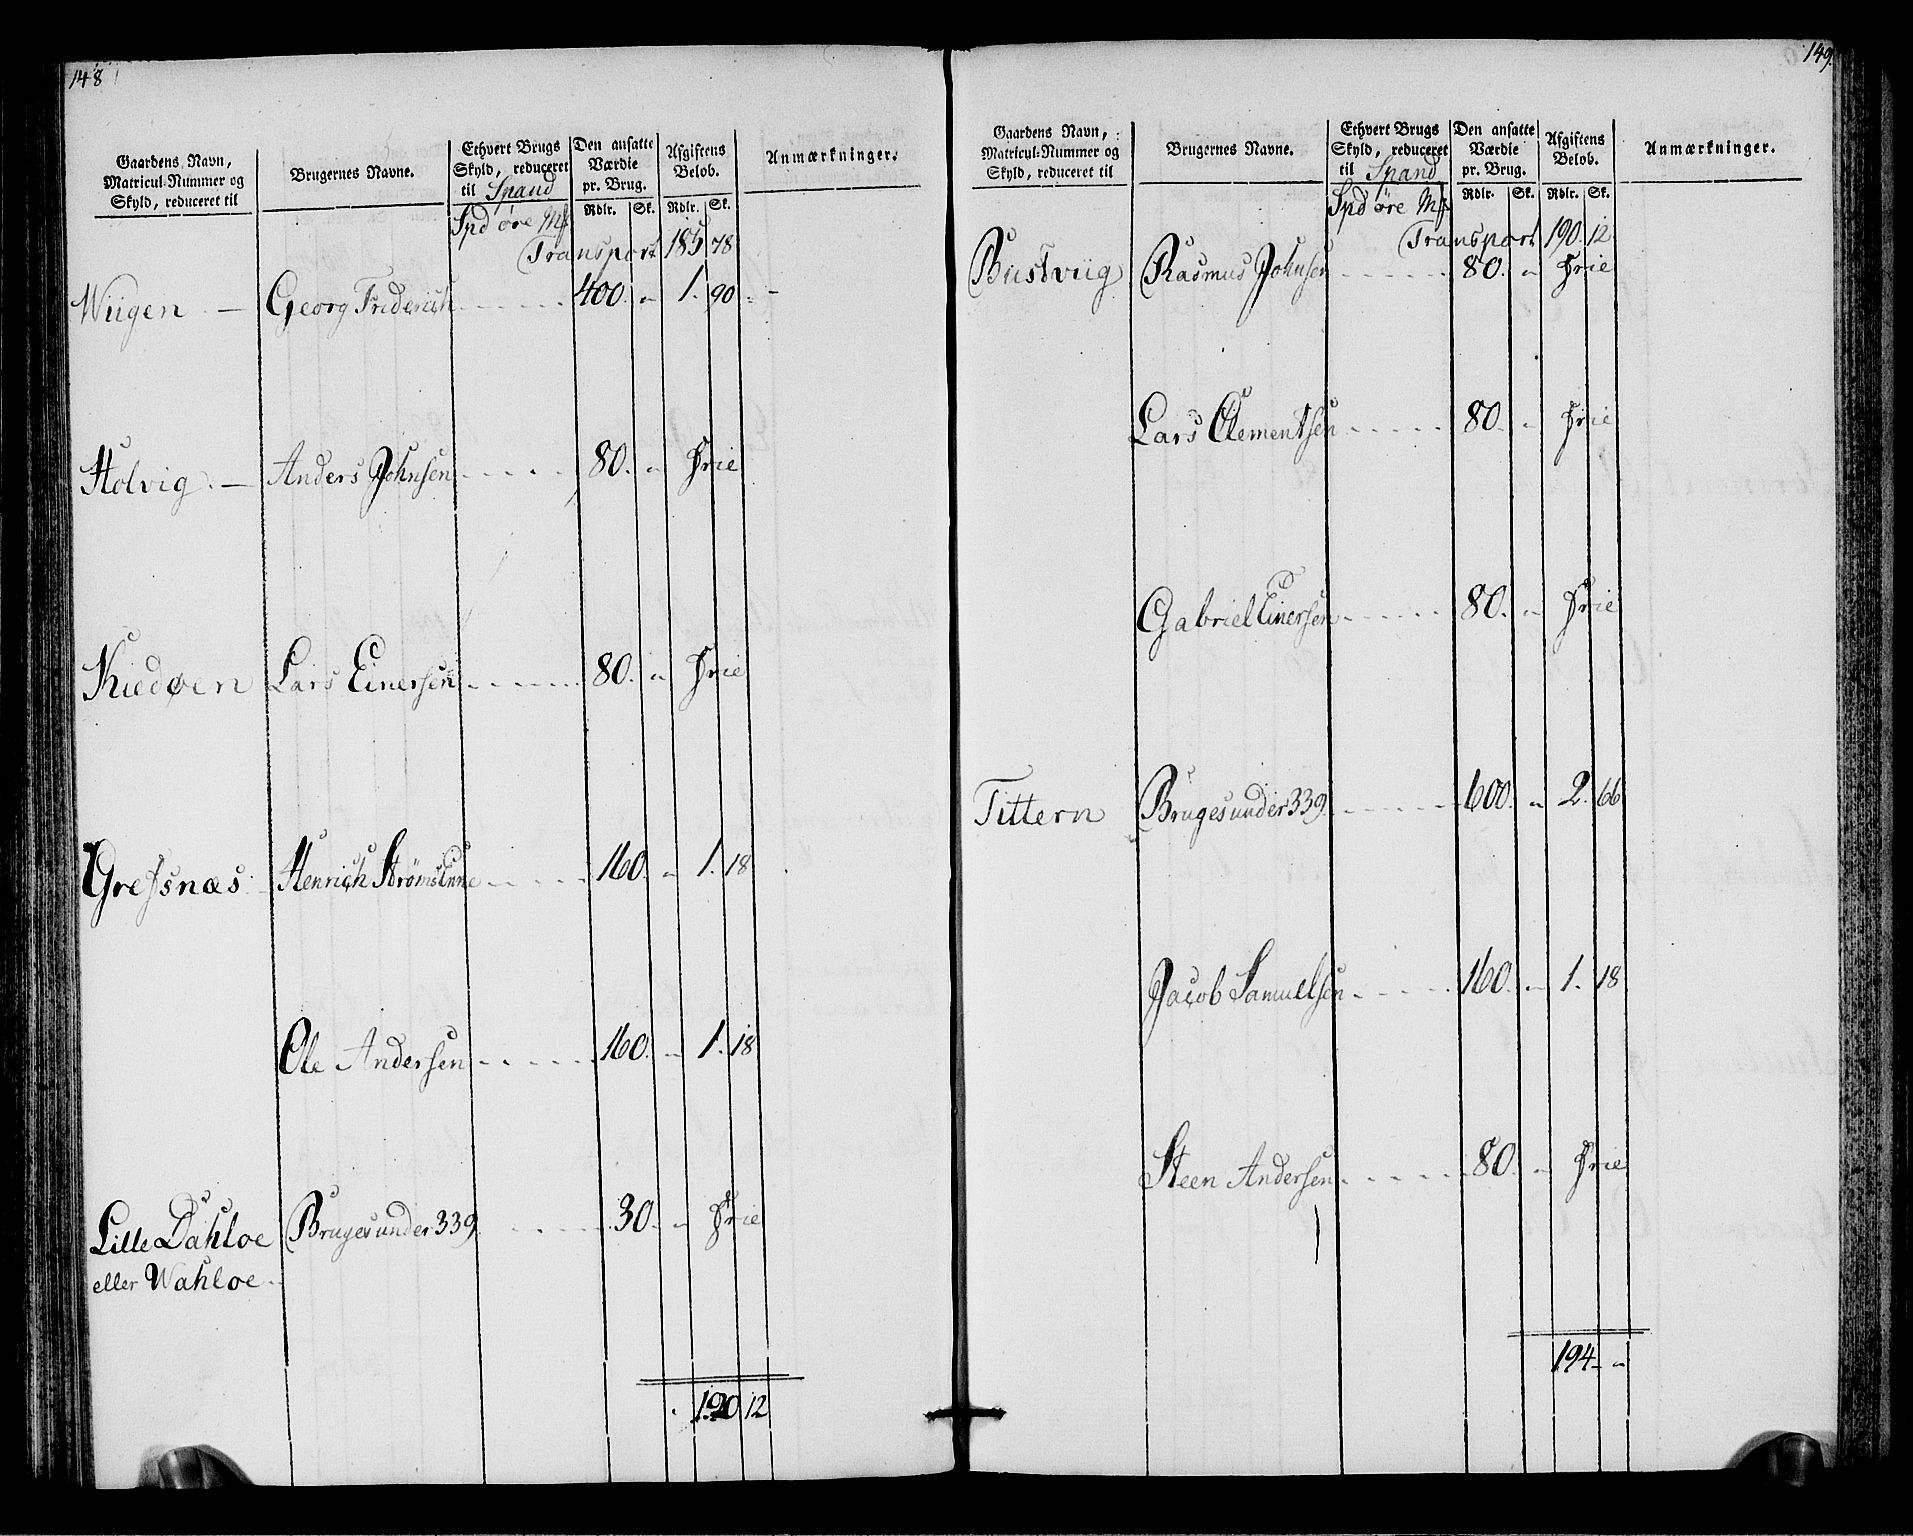 148
Gaardens Navn, Matricul-Nummer og Skyld, reduceret til
Brugernes Navne.
Ethvert Brugs Skyld, reduceret til Spand
Den ansatte Værdie pr. Brug.
Afgiftens Beløb.
Anmærkninger.
Rdlr. Sk. Rdlr. Sk.
Spd øre Mf
Transport 185 78
Wiigen — Georg Friderich 400. " 1. 90
Holvig. — Anders Johnsen 80. " Frie
Kiedøen Lars Einersen 80. " Frie
Grefsnæs Henrich Strømslune 160. " 1. 18
Ole Andersen 160. " 1. 18
Lille Dahloe Bruges under 339 30. " Frie
eller Wahloe
190 12
149.
Gaardens Navn, Matricul-Nummer og Skyld, reduceret til
Brugernes Navne.
Ethvert Brugs Skyld, reduceret til Spand
Den ansatte Værdie pr. Brug.
Afgiftens Beløb.
Anmærkninger.
Rdlr. Sk. Rdlr. Sk.
Spd øre Mf
Transport 190. 12
Bustviig Rasmus Johnsen 80. " Frie
Lars Clementsen 80. " Frie
Gabriel Einersen 80. " Frie
Tittern Bruges under 339 600. " 2. 66
Jacob Samuelsen 160. " 1. 18
Steen Andersen 80. " Frie
194 "